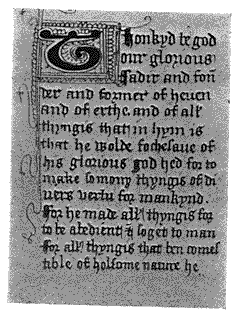 Thonkyd be god
our glorious
fadir and foun
der and former of heuen
and of erthe and of all
thyngis that in hym is
that he wolde fochesaue of
his glorious god hed for to
make so mony thyngis of di
uers vertu for mankynd.
For he made all thyngis for
to be abedient & soget to man
for all thyngis that ben comes
tible of holsome nature he